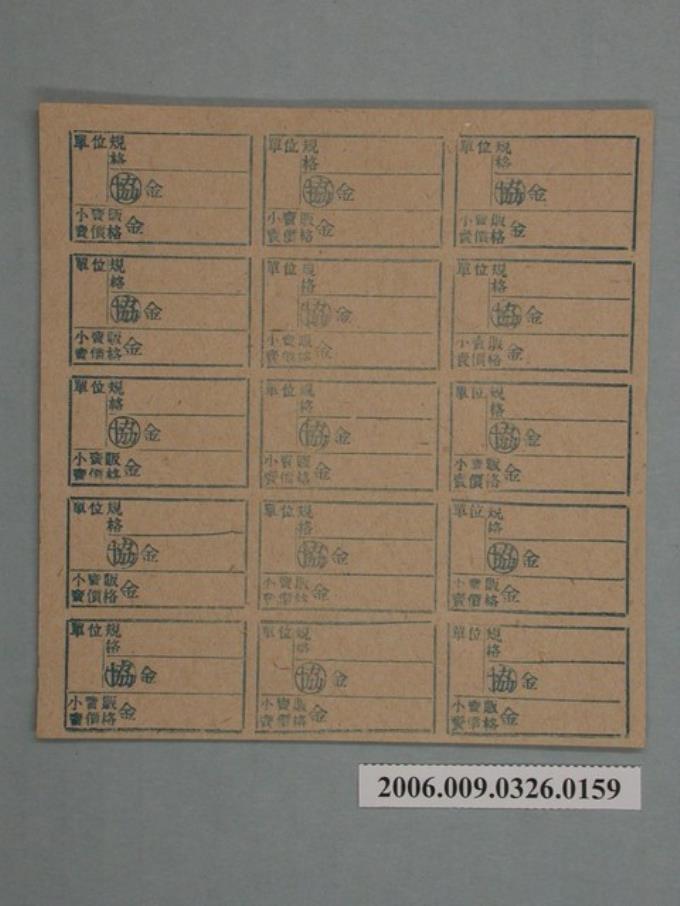 單位規格 單位規格 單位規格
協 金 協 金 協 金
小賣販賣價格 金 小賣販賣價格 金 小賣販賣價格 金
單位規格 單位規格 單位規格
協 金 協 金 協 金
小賣販賣價格 金 小賣販賣價格 金 小賣販賣價格 金
單位規格 單位規格 單位規格
協 金 協 金 協 金
小賣販賣價格 金 小賣販賣價格 金 小賣販賣價格 金
單位規格 單位規格 單位規格
協 金 協 金 協 金
小賣販賣價格 金 小賣販賣價格 金 小賣販賣價格 金
單位規格 單位規格 單位規格
協 金 協 金 協 金
小賣販賣價格 金 小賣販賣價格 金 小賣販賣價格 金
2006.009.0326.0159